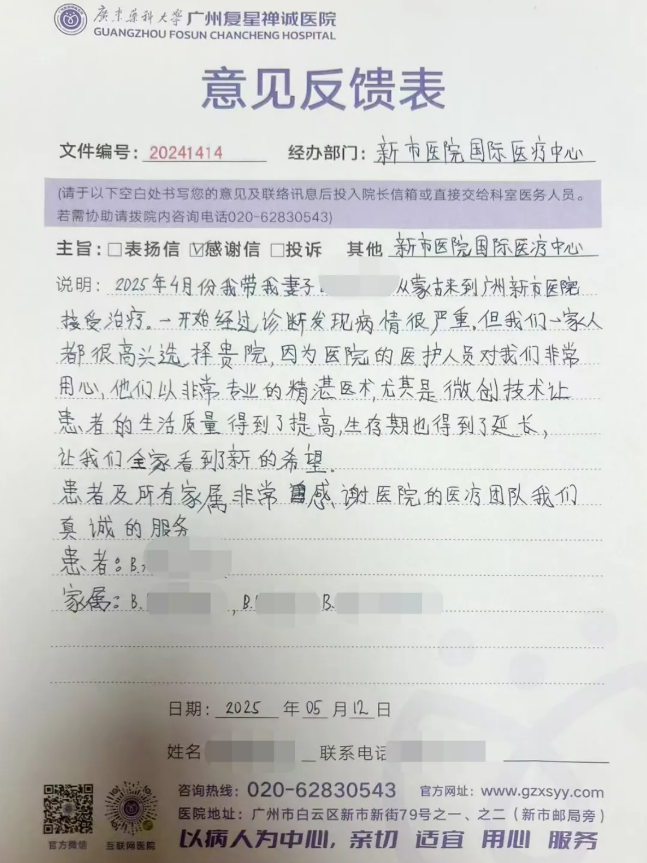 廣東藥科大学 广州复星禅诚医院
GUANGZHOU FOSUN CHANCHENG HOSPITAL
意见反馈表
文件编号：20241414 经办部门：新市医院国际医疗中心
(请于以下空白处书写您的意见及联络讯息后投入院长信箱或直接交给科室医务人员。
若需协助请拨院内咨询电话020-62830543)
主旨：□表扬信 ☑感谢信 □投诉 其他 新市医院国际医疗中心
说明：2025年4月份我带我妻子 从蒙古来到广州新市医院
接受治疗。一开始经过诊断发现病情很严重，但我们一家人
都很高兴选择贵院，因为医院的医护人员对我们非常
用心，他们以非常专业的精湛医术，尤其是微创技术让
患者的生活质量得到了提高，生存期也得到了延长，
让我们全家看到了新的希望。
患者及所有家属非常感谢医院的医疗团队我们
真诚的服务
患者：B.
家属：B. , B. B.
日期：2025 年 05 月 12 日
姓名 联系电话
咨询热线：020-62830543 官方网址：www.gzxsyy.com
医院地址：广州市白云区新市新街79号之一、之二（新市邮局旁）
官方微信 互联网医院 以病人为中心，亲切 适宜 用心 服务